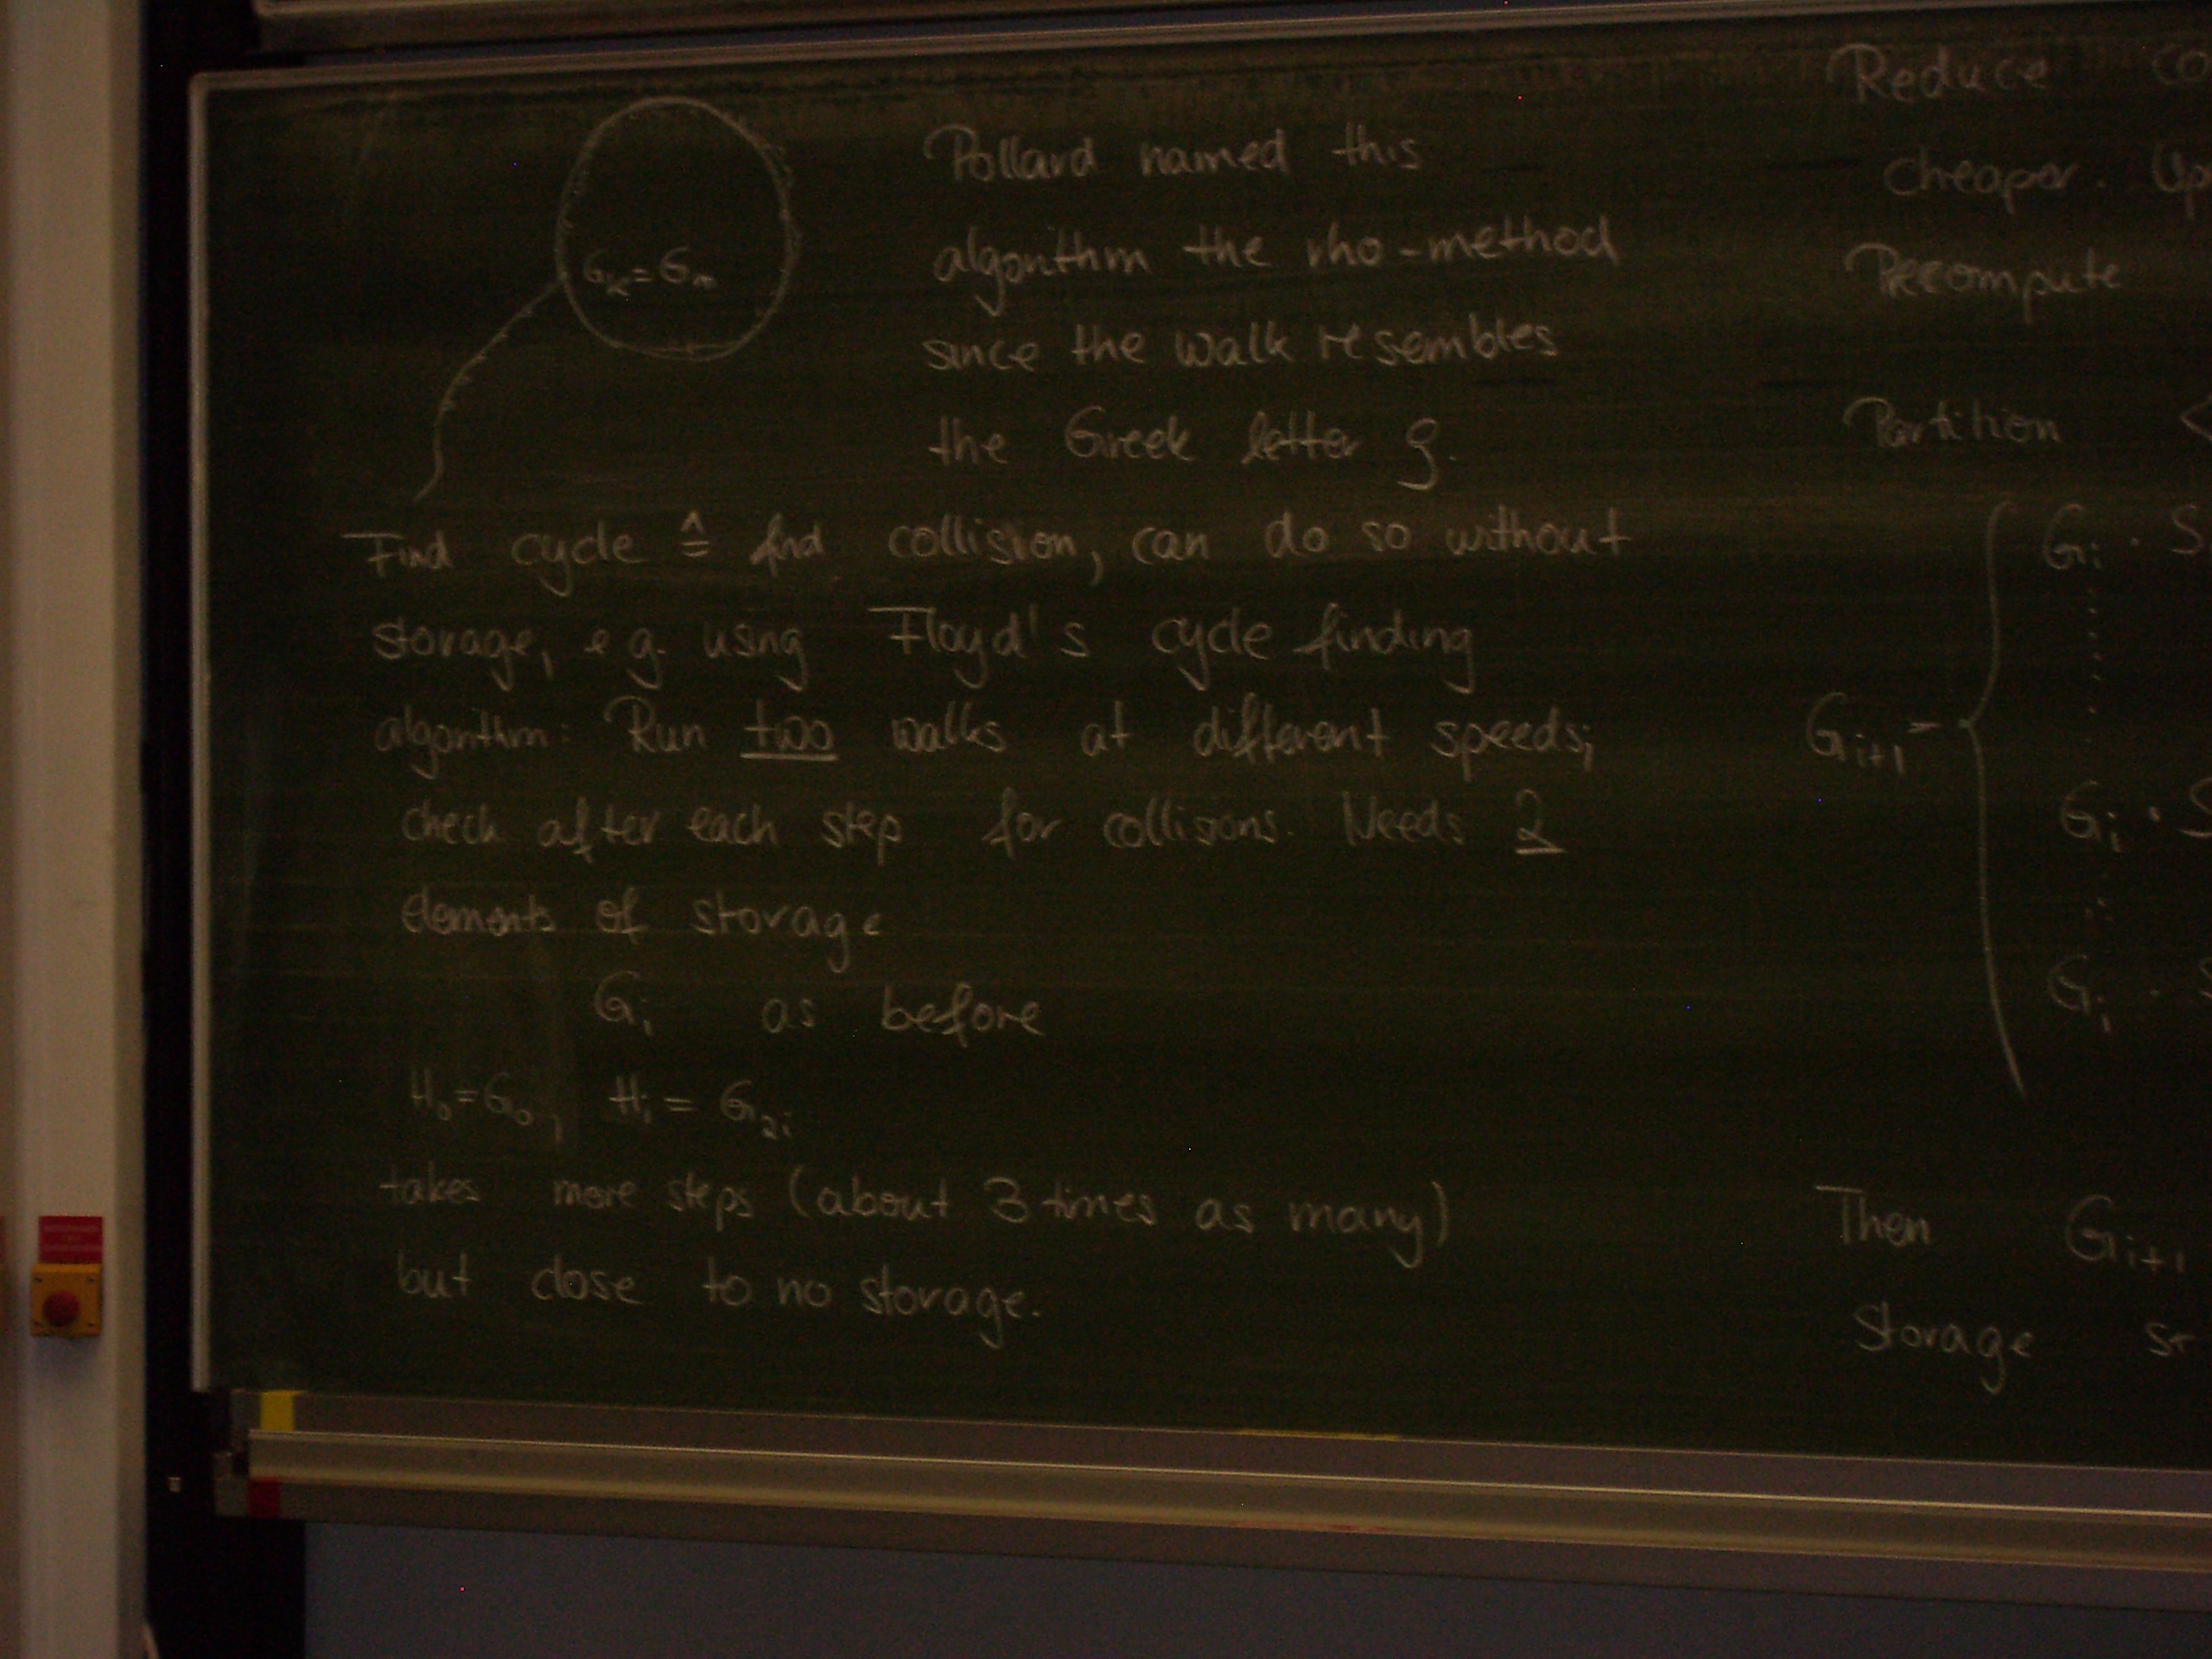 G_k = G_m
Pollard named this
algorithm the rho-method
since the walk resembles
the Greek letter ρ.
Find cycle ≙ find collision, can do so without
storage, e.g. using Floyd's cycle finding
algorithm: Run two walks at different speeds;
check after each step for collisions. Needs 2
elements of storage
G_i as before
H_0 = G_0, H_i = G_2i
takes more steps (about 3 times as many)
but close to no storage.
Reduce co
cheaper. Up
Precompute
Partition <
G_i · S
G_i+1 =
G_i · S
G_i · S
Then G_i+1
Storage st